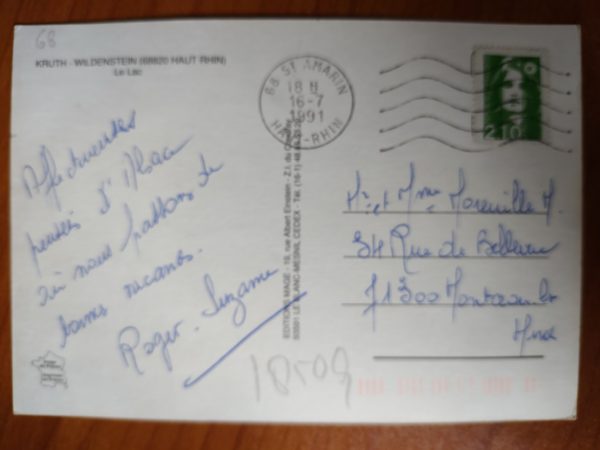 68
KRUTH - WILDENSTEIN (68820 HAUT RHIN)
Le Lac
Affectueuses
pensées d'Alsace
où nous passons de
bonnes vacances.
Roger - Suzanne
EDITIONS MAGE - 19, rue Albert Einstein - Z.I. du
93591 LE BLANC-MESNIL CEDEX - Tél. (16-1)
68 ST AMARIN
18 H
16-7
1991
HAUT-RHIN
2,10
Mr et Mme Moreuille M.
34 Rue de Bellevue
71300 Montceau les
Mines
18509